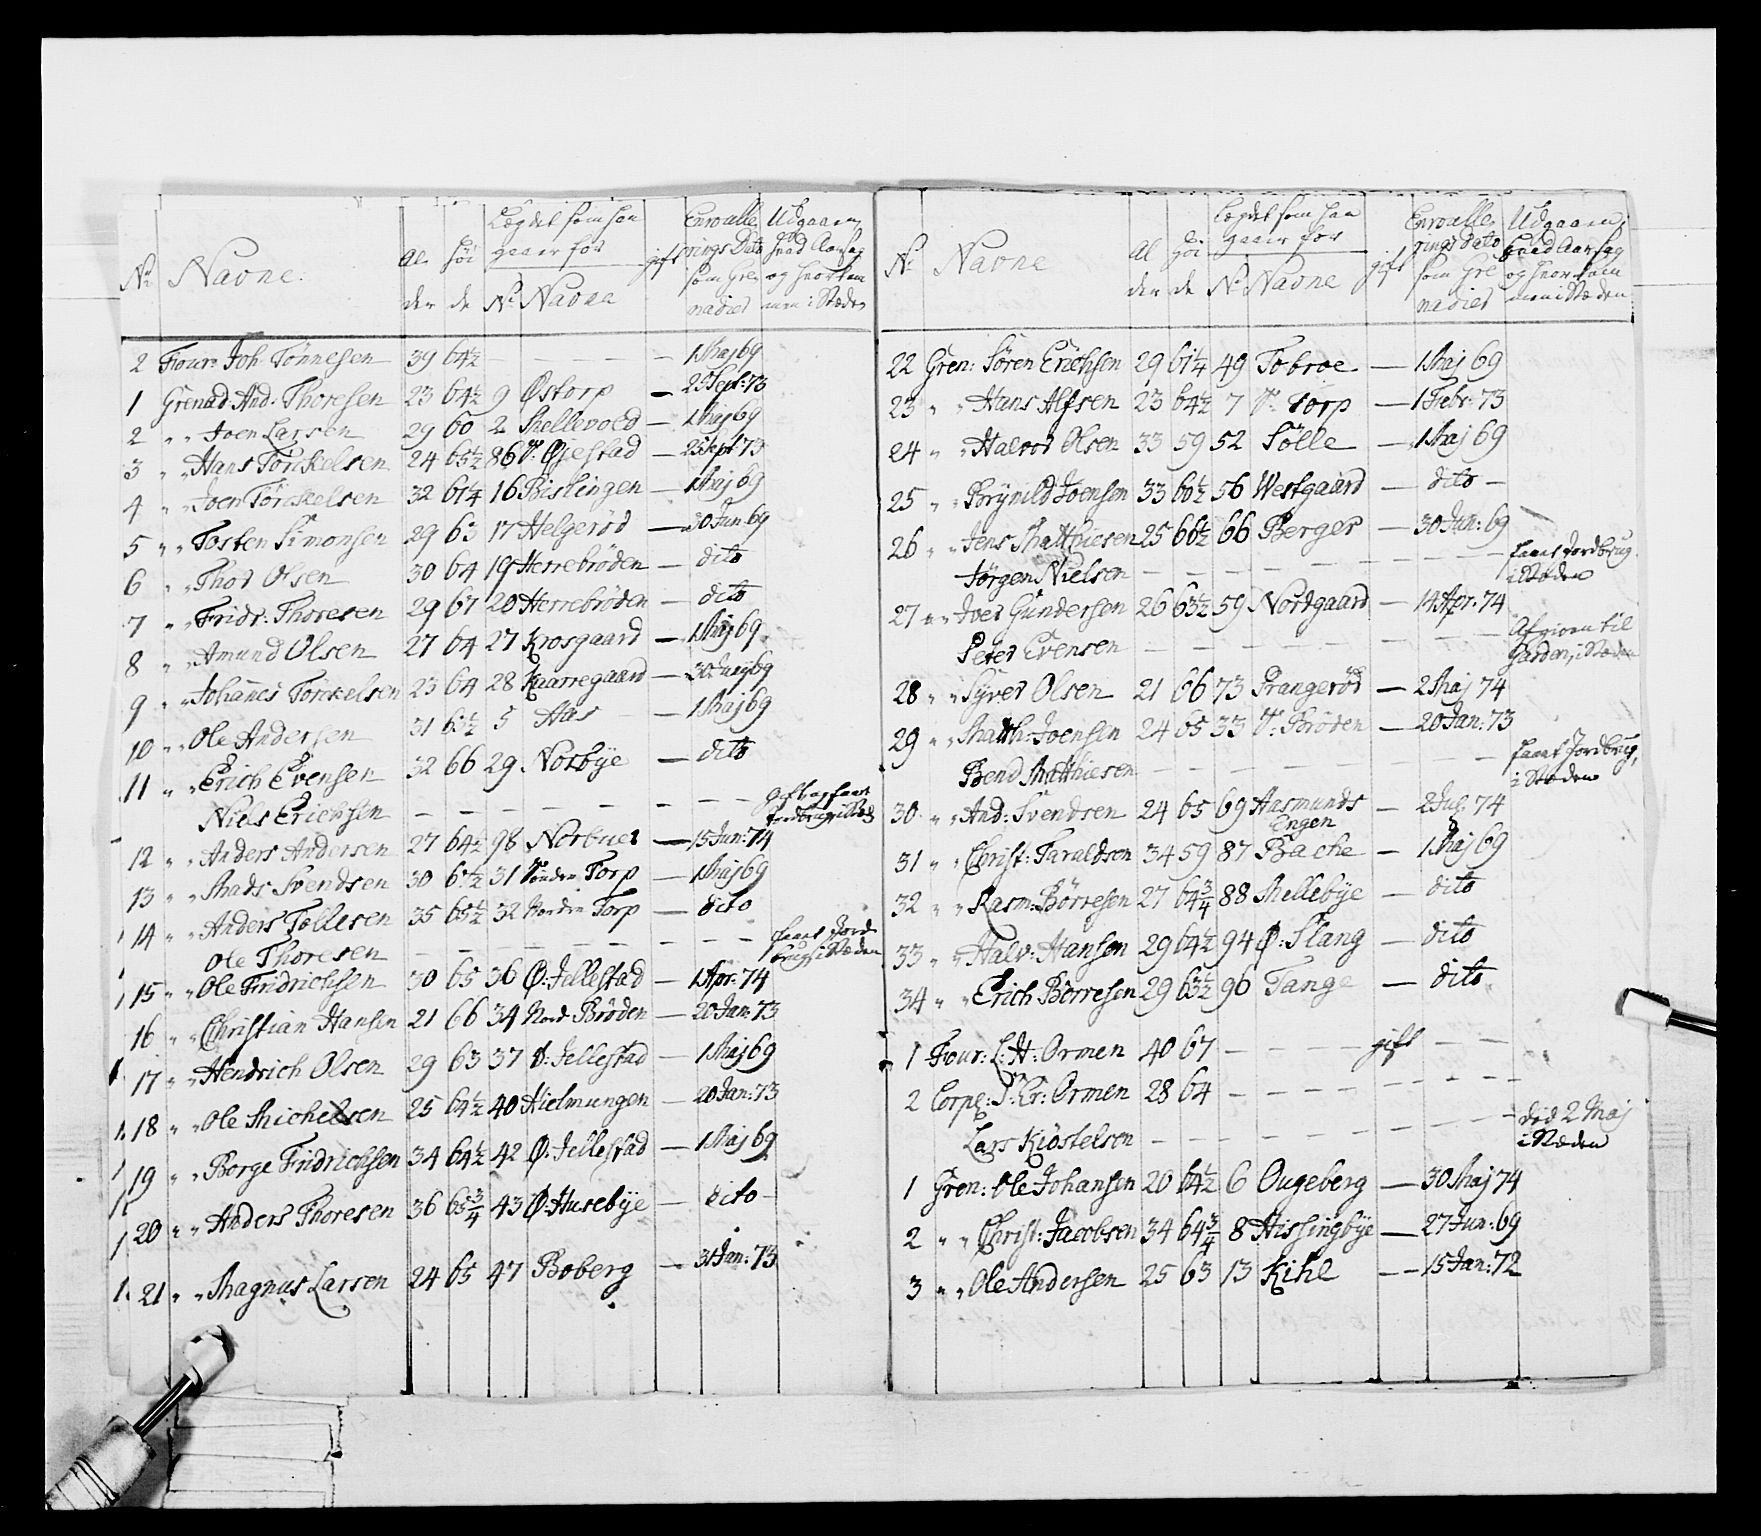 No Navne. Al der Høi de Lægdet som han gaaer for No Navne gift Enroulle rings Dato som Gre nadier Udgaaen, hvad Aarsag og hvorkom men i Stæden
2 Four: Joh: Tönnesen 39 64½ — — — 1 Maj 69
1 Grenad. And: Thoresen 23 64½ 9 Østorp — 25 Sept: 73
2 " " Joen Larsen 29 60 2 Mellevold — 1 Maj 69
3 " " Hans Törckelsen 24 65½ 86 V: Øjestad — 25 Sept 73
4 " " Joen Törckelsen 32 61¼ 16 Bislingen — 1 Maj 69
5 " " Tosten Simonsen 29 63 17 Helgeröd — 30 Jun 69
6 " " Thor Olsen 30 64 19 Herrebröden — dito
7 " " Fridr: Thoresen 29 67 20 Herrebröden — dito
8 " " Amund Olsen 27 64 27 Krosgaard — 1 Maj 69
9 " " Johannes Törckelsen 23 64 28 Kaarregaard — 30 Junj 69
10 " " Ole Andersen 31 6½ 5 Aas — 1 Maj 69
11 " " Erich Evensen 32 66 29 Norbÿe — dito
Niels Erichsen — — — — — — — gift og faaet Jordbrug i Stæd
12 " " Anders Andersen 27 64½ 98 Norbruet — 15 Jun: 74
13 " " Mads Svendsen 30 6½ 31 Sönder Torp — 1 Maj 69
14 " " Anders Tollesen 35 65½ 32 Nordre Torp — dito
Ole Thoresen — — — — — — — faaet Jord brug i Stæden
15 " " Ole Fridrichsen 30 65 36 Ø: Jellestad — 1 Apr: 74
16 " " Christian Hansen 21 66 34 Nord Bröden — 20 Jan: 73
17 " " Hendrich Olsen 29 63 37 V: Jellestad — 1 Maj 69
18 " " Ole Michelsen 25 64½ 40 Hielmungen — 20 Jan: 73
19 " " Borge Fridrichsen 34 64½ 42 Ø: Jellestad — 1 Maj 69
20 " " Anders Thoresen 36 65¾ 43 Ø: Husebÿe — dito
21 " " Magnus Larsen 24 65 47 Boberg — 31 Jan: 73
No Navne Al der Høi de Lægdet som han gaaer for No Navne gift Enroulle rings dato som Gre nadier Udgaaen, hvad Aarsag og hvorkom men i Stæden
22 Gren: Sören Erichsen 29 61¼ 49 Tobroe — 1 Maj 69
23 " " Hans Alfsen 23 64½ 7 V: Torp — 1 Febr: 73
24 " " Halvor Olsen 33 59 52 Sölle — 1 Maj 69
25 " " Brÿnild Joensen 33 60½ 56 Westgaard — dito —
26 " " Jens Matthiesen 25 66½ 66 Berger — 30 Jun: 69
Jörgen Nielsen — — — — — — — faaet Jordbrug i Stæden
27 " " Iver Gundersen 26 63½ 59 Nordgaard — 14 Apr: 74
Peter Evensen — — — — — — — Afgiven til Garden, i Stæden
28 " " Sÿver Olsen 21 66 73 Prangeröd — 2 Maj 74
29 " " Matth: Joensen 24 65 33 V: Bröden — 20 Jan: 73
Bend Matthiesen — — — — — — — faaet Jordbrug, i Stæden
30 " " And: Svendsen 24 65 69 Ausmunds Engen — 2 Jul: 74
31 " " Christ: Taraldsen 34 59 87 Bache — 1 Maj 69
32 " " Rasm: Börresen 27 64¾ 88 Mellebÿe — dito
33 " " Halv: Hansen 29 64½ 94 Ø: Slang — dito
34 " " Erich Börresen 29 63½ 96 Tange — dito
1 Four: L: H: Ormen 40 67 — — — gift — —
2 Corpl: P: Er: Ormen 28 64 — — — — — —
Lars Kiöstelsen — — — — — — — död 2 Maj i Stæden
1 Gren: Ole Johansen 20 64½ 6 Ougeberg — 30 Maj 74
2 " " Christ: Jacobsen 34 64¾ 8 Hissingbÿe — 27 Jun: 69
3 " " Ole Andersen 25 63 13 Kihl — 15 Jan: 72